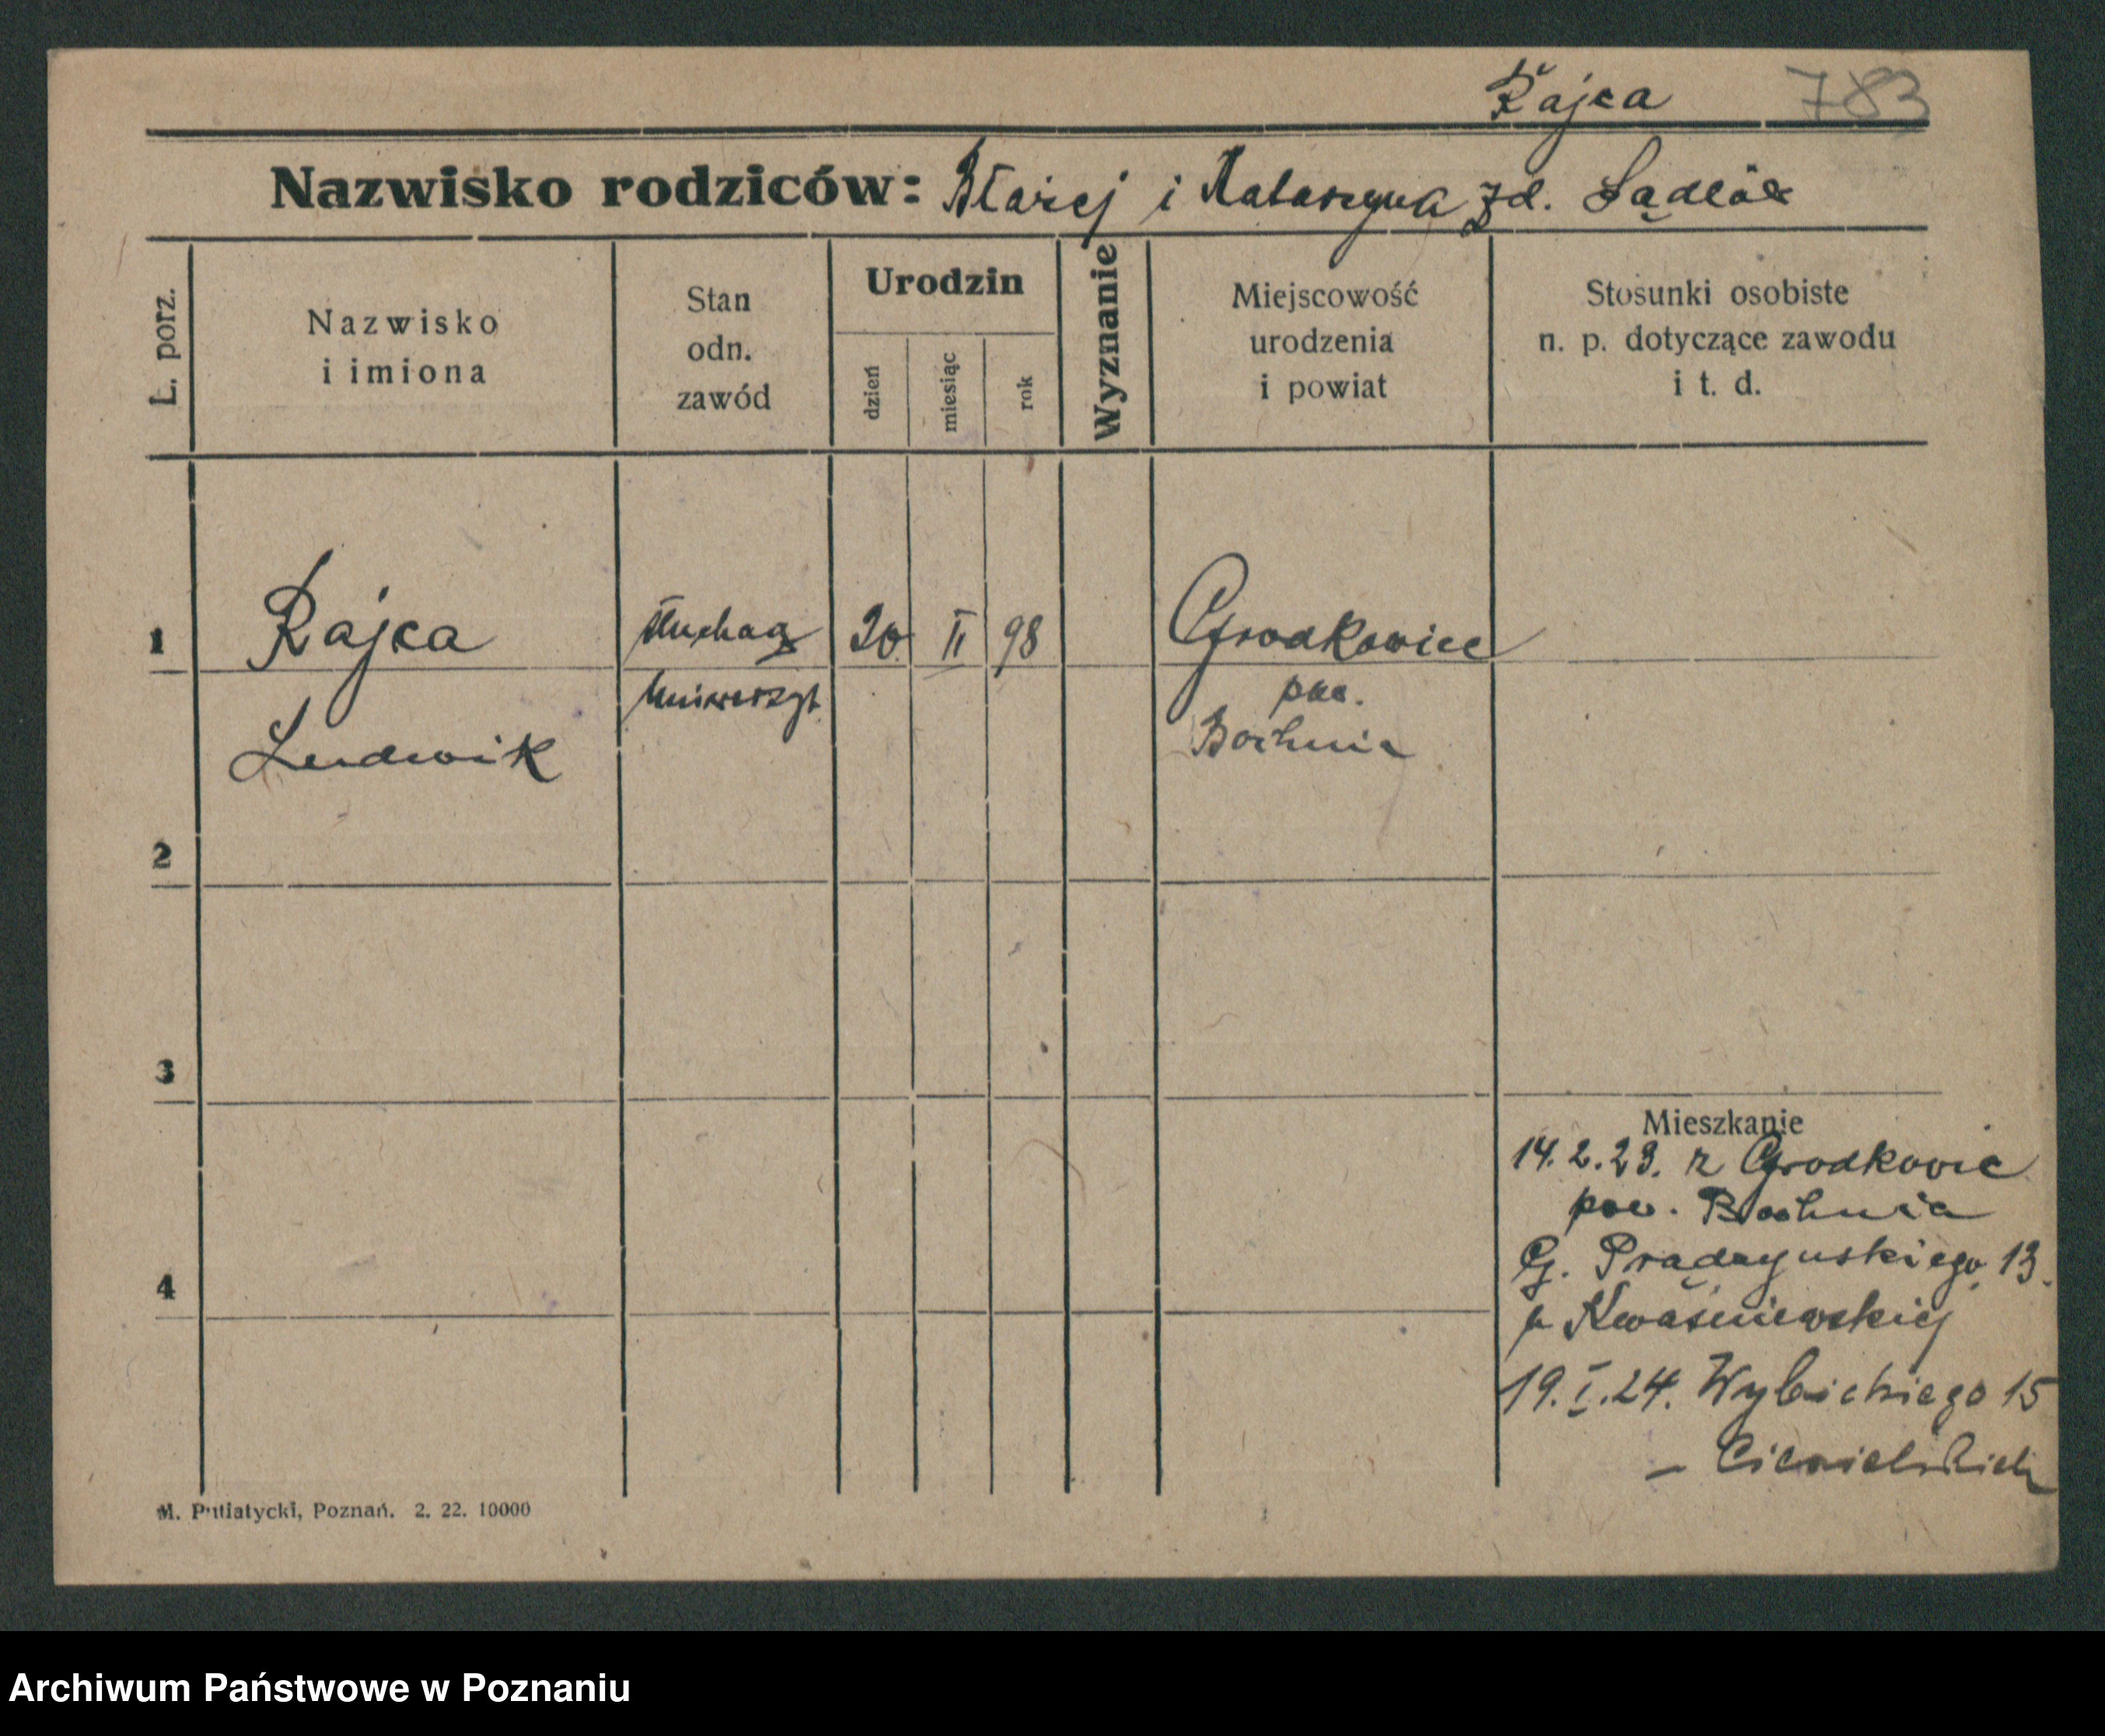 Rajca 783
Nazwisko rodziców: Błażej i Katarzyna zd.
L. porz.
Nazwisko
i imiona
Stan
odn.
zawód
Urodzin
dzień
miesiąc
rok
Wyznanie
Miejscowość
urodzenia
i powiat
Stosunki osobiste
n. p. dotyczące zawodu
i t. d.
1 Rajca słuchacz 20 II 98 Grodkowice
Uniwerszyt. pow.
Ludwik Bochnia
2
3
4
Mieszkanie
14.2.23. z Grodkowic
pow. Bochnia
G. Prądzyńskiego 13.
u Kwaśniewskiej
19.I.24. Wybickiego 15
M. Putiatycki, Poznań. 2. 22. 10000
Archiwum Państwowe w Poznaniu